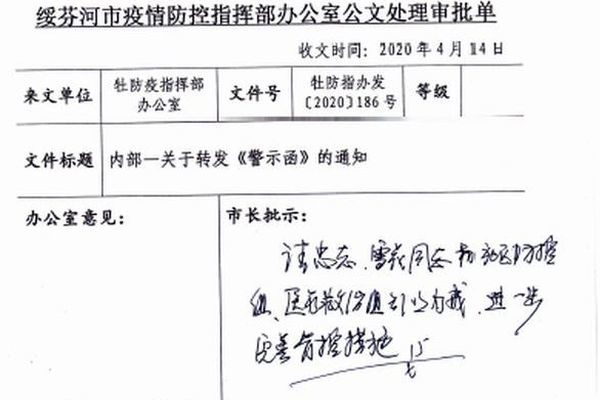 绥芬河市疫情防控指挥部办公室公文处理审批单
收文时间：2020 年 4 月 14 日
来文单位 牡防疫指挥部办公室 文件号 牡防指办发〔2020〕186 号 等级
文件标题 内部—关于转发《警示函》的通知
办公室意见： 市长批示：
请 同志
组、 引以为戒、进一步
完善 控措施